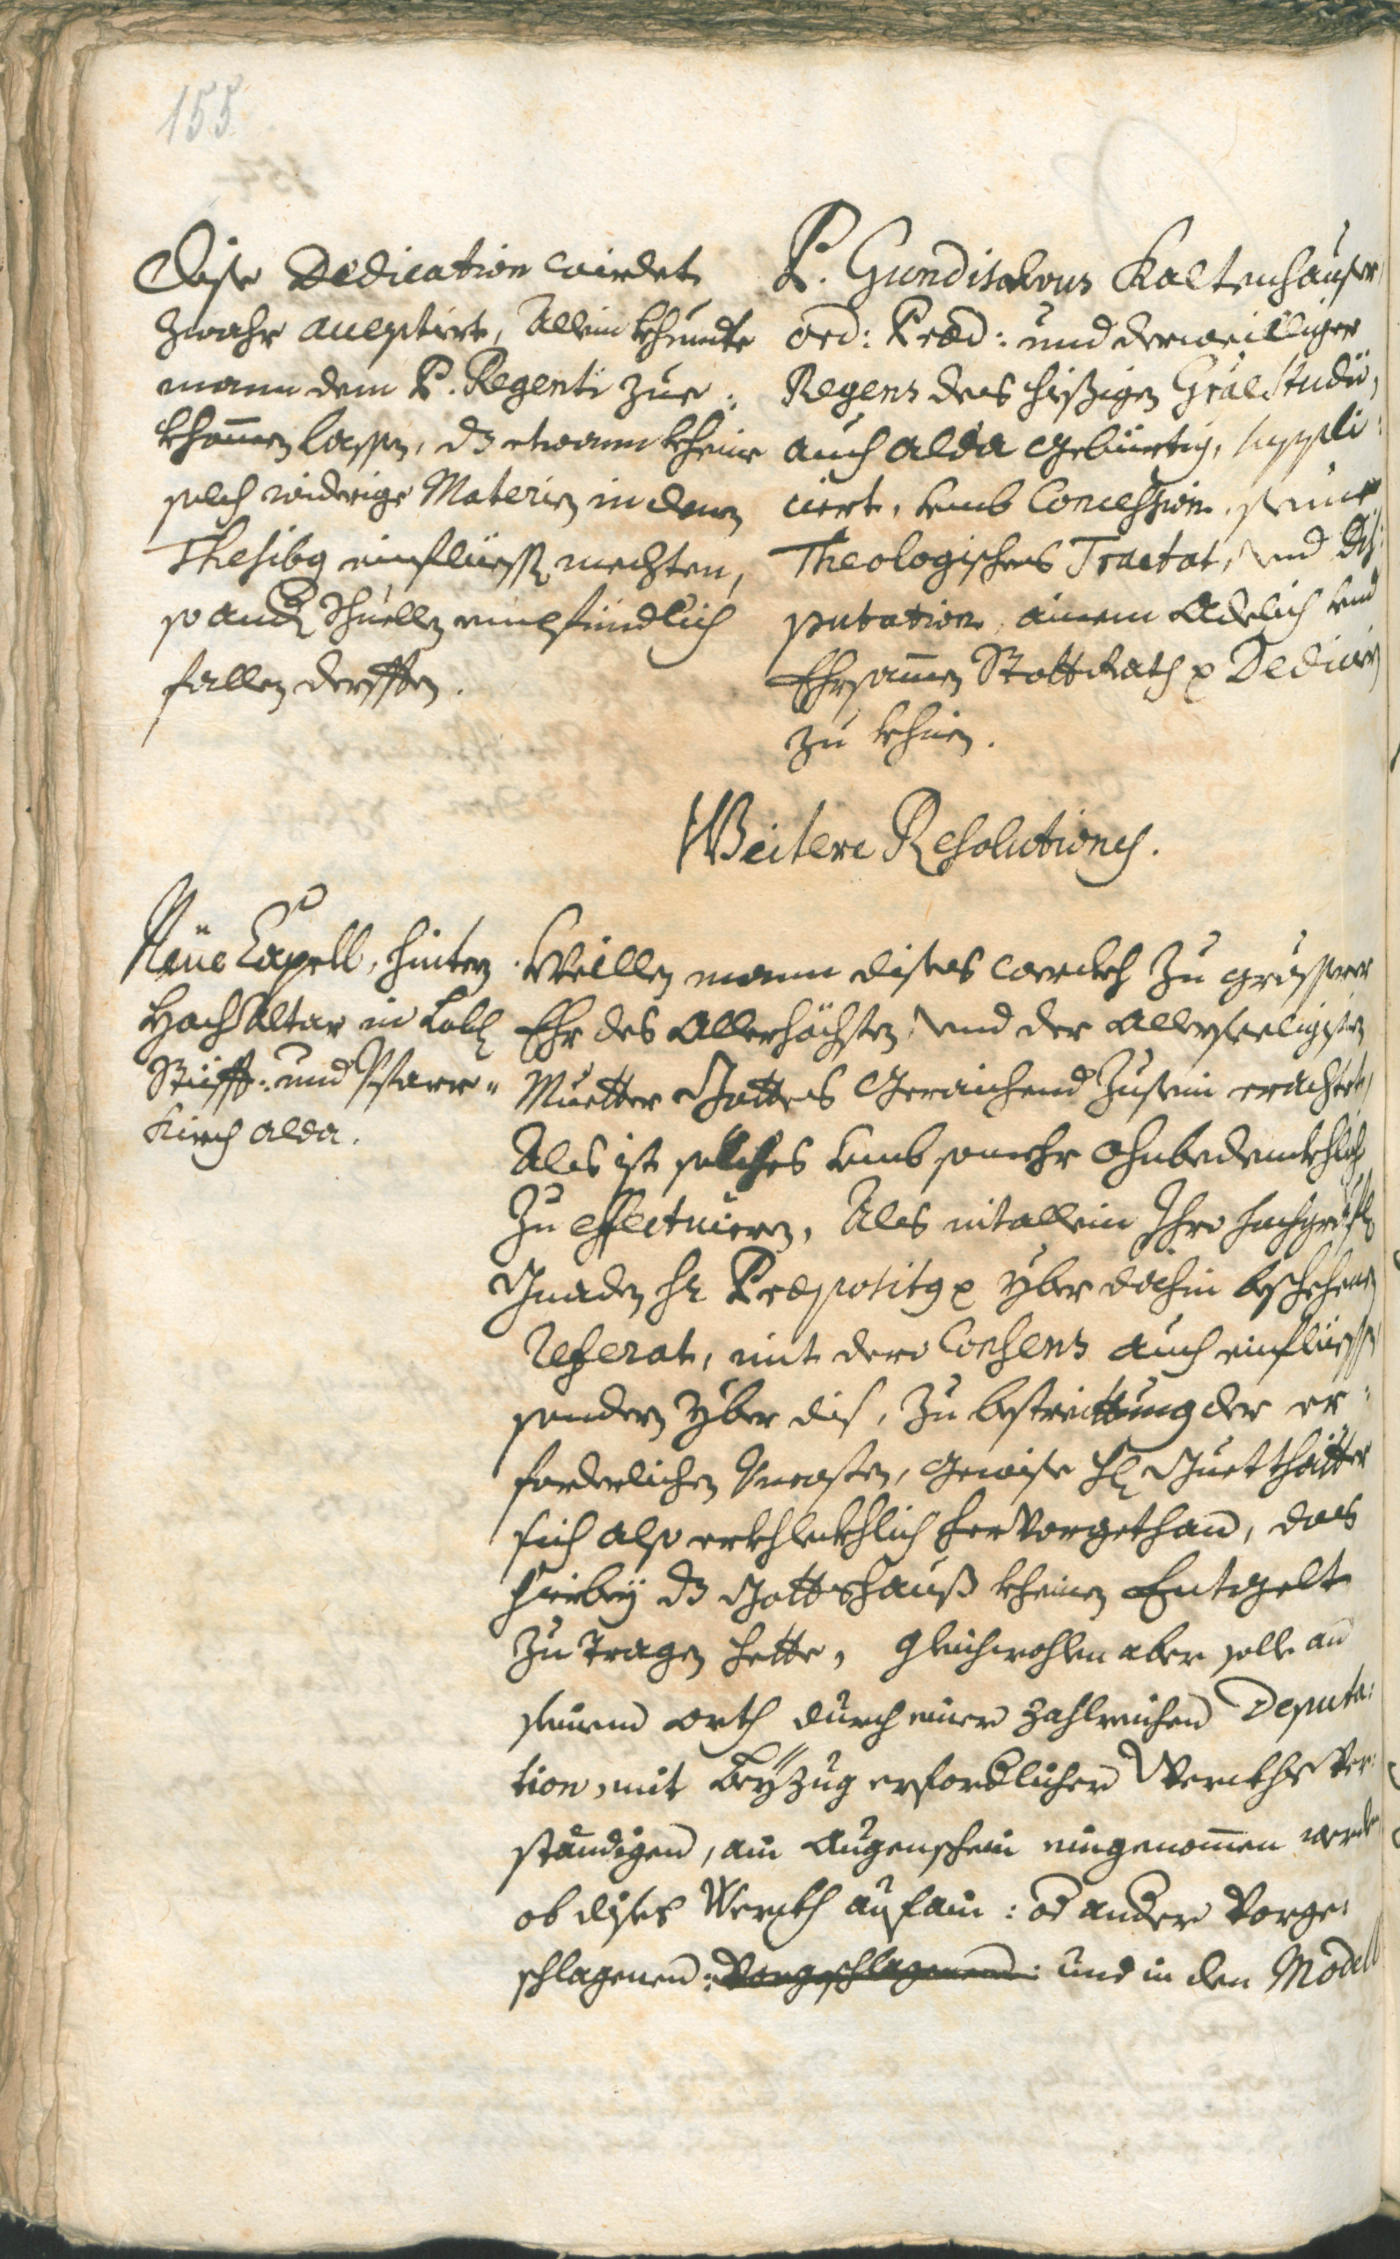 155
Dise Dedication wirdet
zwahr acceptiert, Allein khundte
mann dem P. Regenti zue:
khommen lassen, dz etwann kheine
solch widrige Materien in denen
Thesibus einfliessen mechten,
so andern Schuellen empfindlich
fallen derfften.
P. Gundisalvus Kaltenhauser
ord: Præd: und derweilliger
Regens des hießigen Gral Studii,
auch alda gebürtig, suppli:
ciert, umb Concession, seinen
Theologischen Tractat, und Dis:
putation, ainem Adelich und
Ehrsammen Statt Rath p Dedicirn
zu khinen.
Weitere Resolutiones.
Neue Capell, hintern
Hoch Altar in Lobl
Stüfft: und Pfarr=
Kirch alda.
Weillen mann dises werckh zu grösserer
Ehr des Allerhöchsten, und der Allerseeligisten
Muetter Gottes Geraichend zusein erachtet,
Als ist solches umb somehr ohnbedenckhlich
zu effectuieren, Als nit allein Ihro hochgräfl
Gnaden hr Præpositus p yber dahin beschehenen
Referat, mit dero Consens auch einfliessen,
sondern yber dis, zu bestreittung der er:
forderlichen Uncosten, gewise hl Guetthätter
sich also erkhleckhlich hervorgethan, das
hierbey dz Gottshauß kheinen Entgelt
zu tragen hette, gleichwohlen aber solle an
seinem orth durch einer zahlreichen Deputa:
tion, mit Beyzug erforderlicher Werckhs Ver:
ständigen, ain Augenschein eingenommen werden
ob dises Werckh auf ain: od andere Vorge:
schlagenen: Vorgeschlagenen: und in den Modell